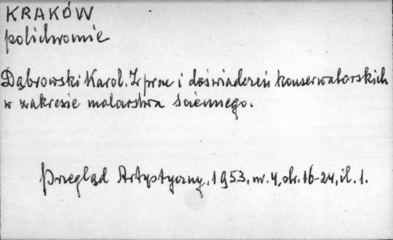 KRAKÓW
polichromie
Dąbrowski Karol. Z prac i doświadczeń konserwatorskich
w zakresie malarstwa ściennego.
Przegląd Artystyczny, 1953, nr. 4, str. 16-24, il. 1.